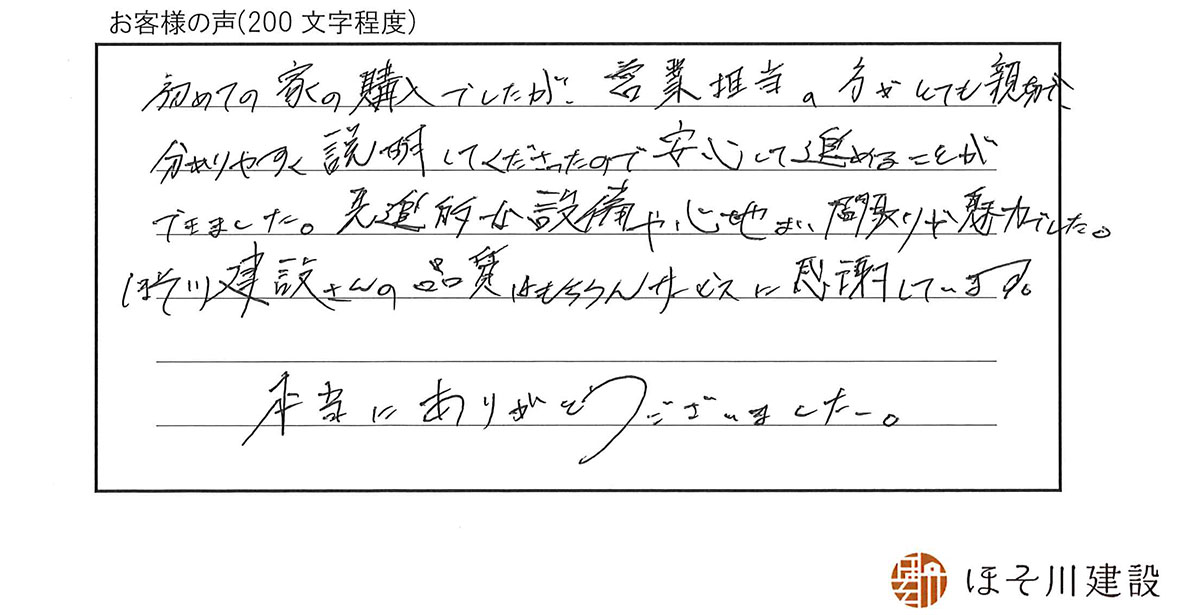 お客様の声(200 文字程度)
初めての家の購入でしたが、営業担当の方がとても親切で、
分かりやすく説明してくださったので安心して進めることが
できました。先進的な設備や心地よい間取りが魅力でした。
ほそ川建設さんの品質はもちろんサービスに感謝しています。
本当にありがとうございました。
ほそ川建設